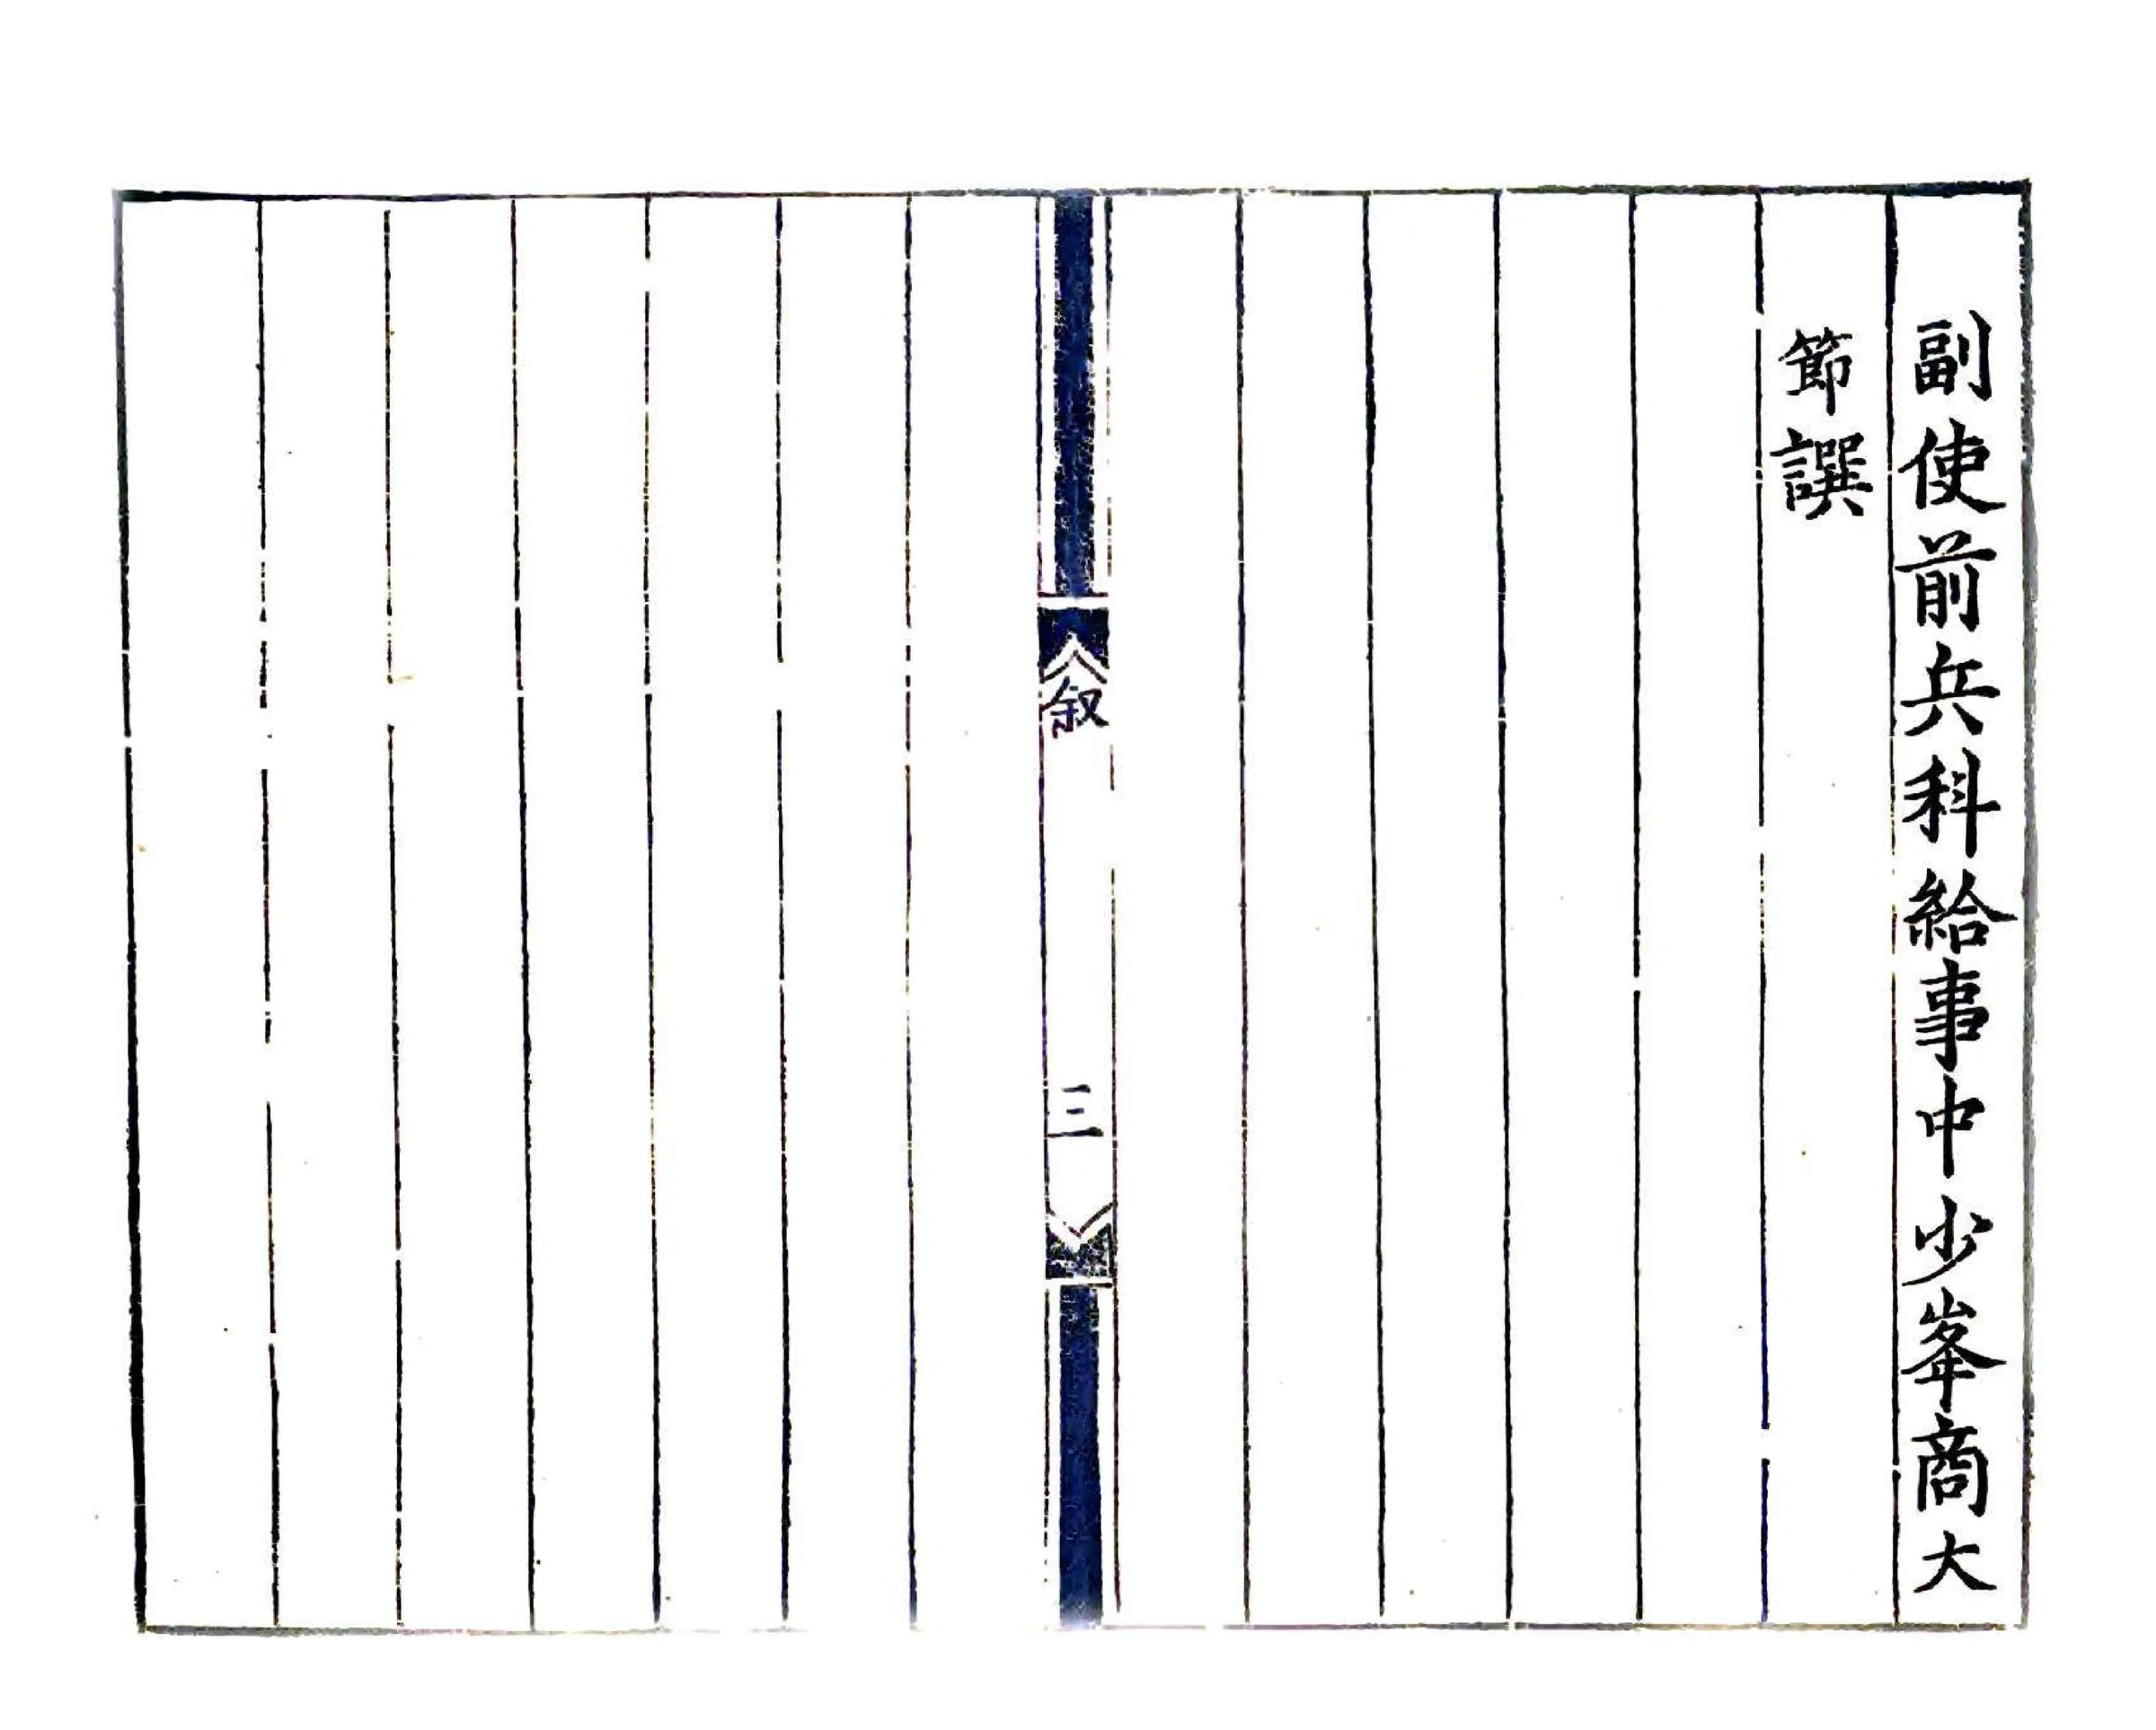 副使前兵科給事中少峯商大
節譔
叙
三